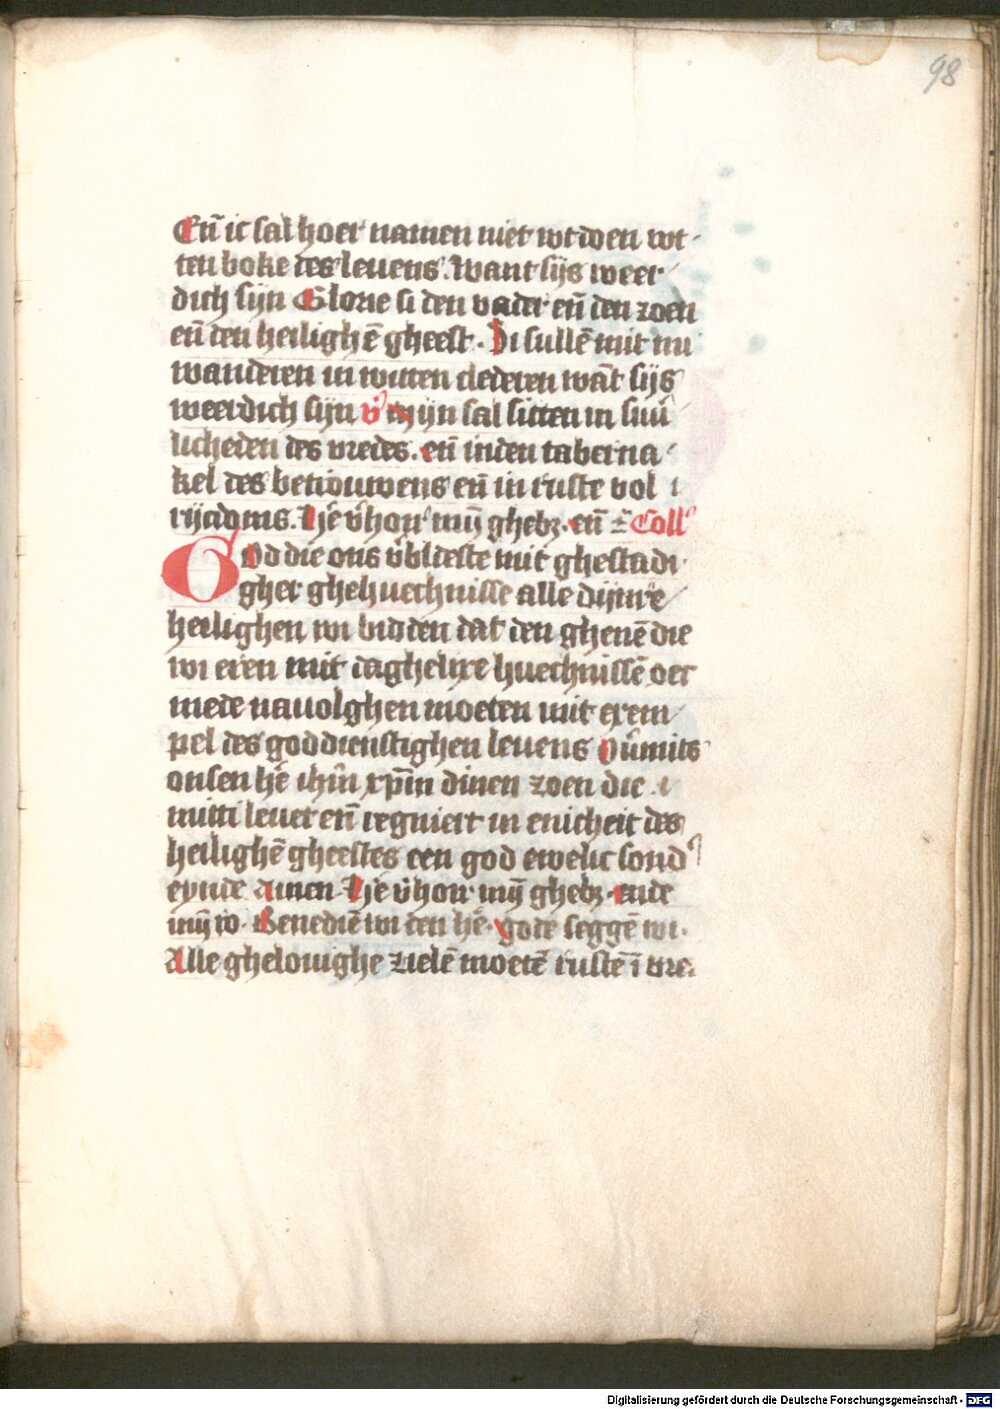 98
Eñ ic sal hoer namen niet wtdoen wt
ten boke des leuens. Want sijs weer
dich sijn Glorie si den vader eñ den zoen
eñ den heilighē gheest. Di sullē mit mi
wanderen in witten clederen wāt sijs
weerdich sijn v̄ Mijn sal sitten in sūū
licheden des vredes. eñ inden taberna
kel des betrouwens eñ in ruste vol
rijcdoms. H'e v̄hor' mÿ ghebꝫ. eñ ꝛ̄ Coll'
God die ons v̄blideste mit ghestadi
gher ghehuechnisse alle dijnre
heilighen wi bidden dat den ghenē die
wi eren mit daghelixe huechnissē oec
mede nauolghen moeten mit exem
pel des goddienstighen leuens Ov̄mits
onsen h'e ih̄m xp̄m dinen zoen die
mitti leuet eñ regniert in enicheit des
heilighē gheestes een god ewelic sond'
eynde Amen H'e v̄hor mÿ ghebꝫ. ende
mÿ ro. Benediē wi den h'e. gode seggē wi.
Alle ghelouighe zielē moetē rustē ī vre.
Digitalisierung gefördert durch die Deutsche Forschungsgemeinschaft - DFG